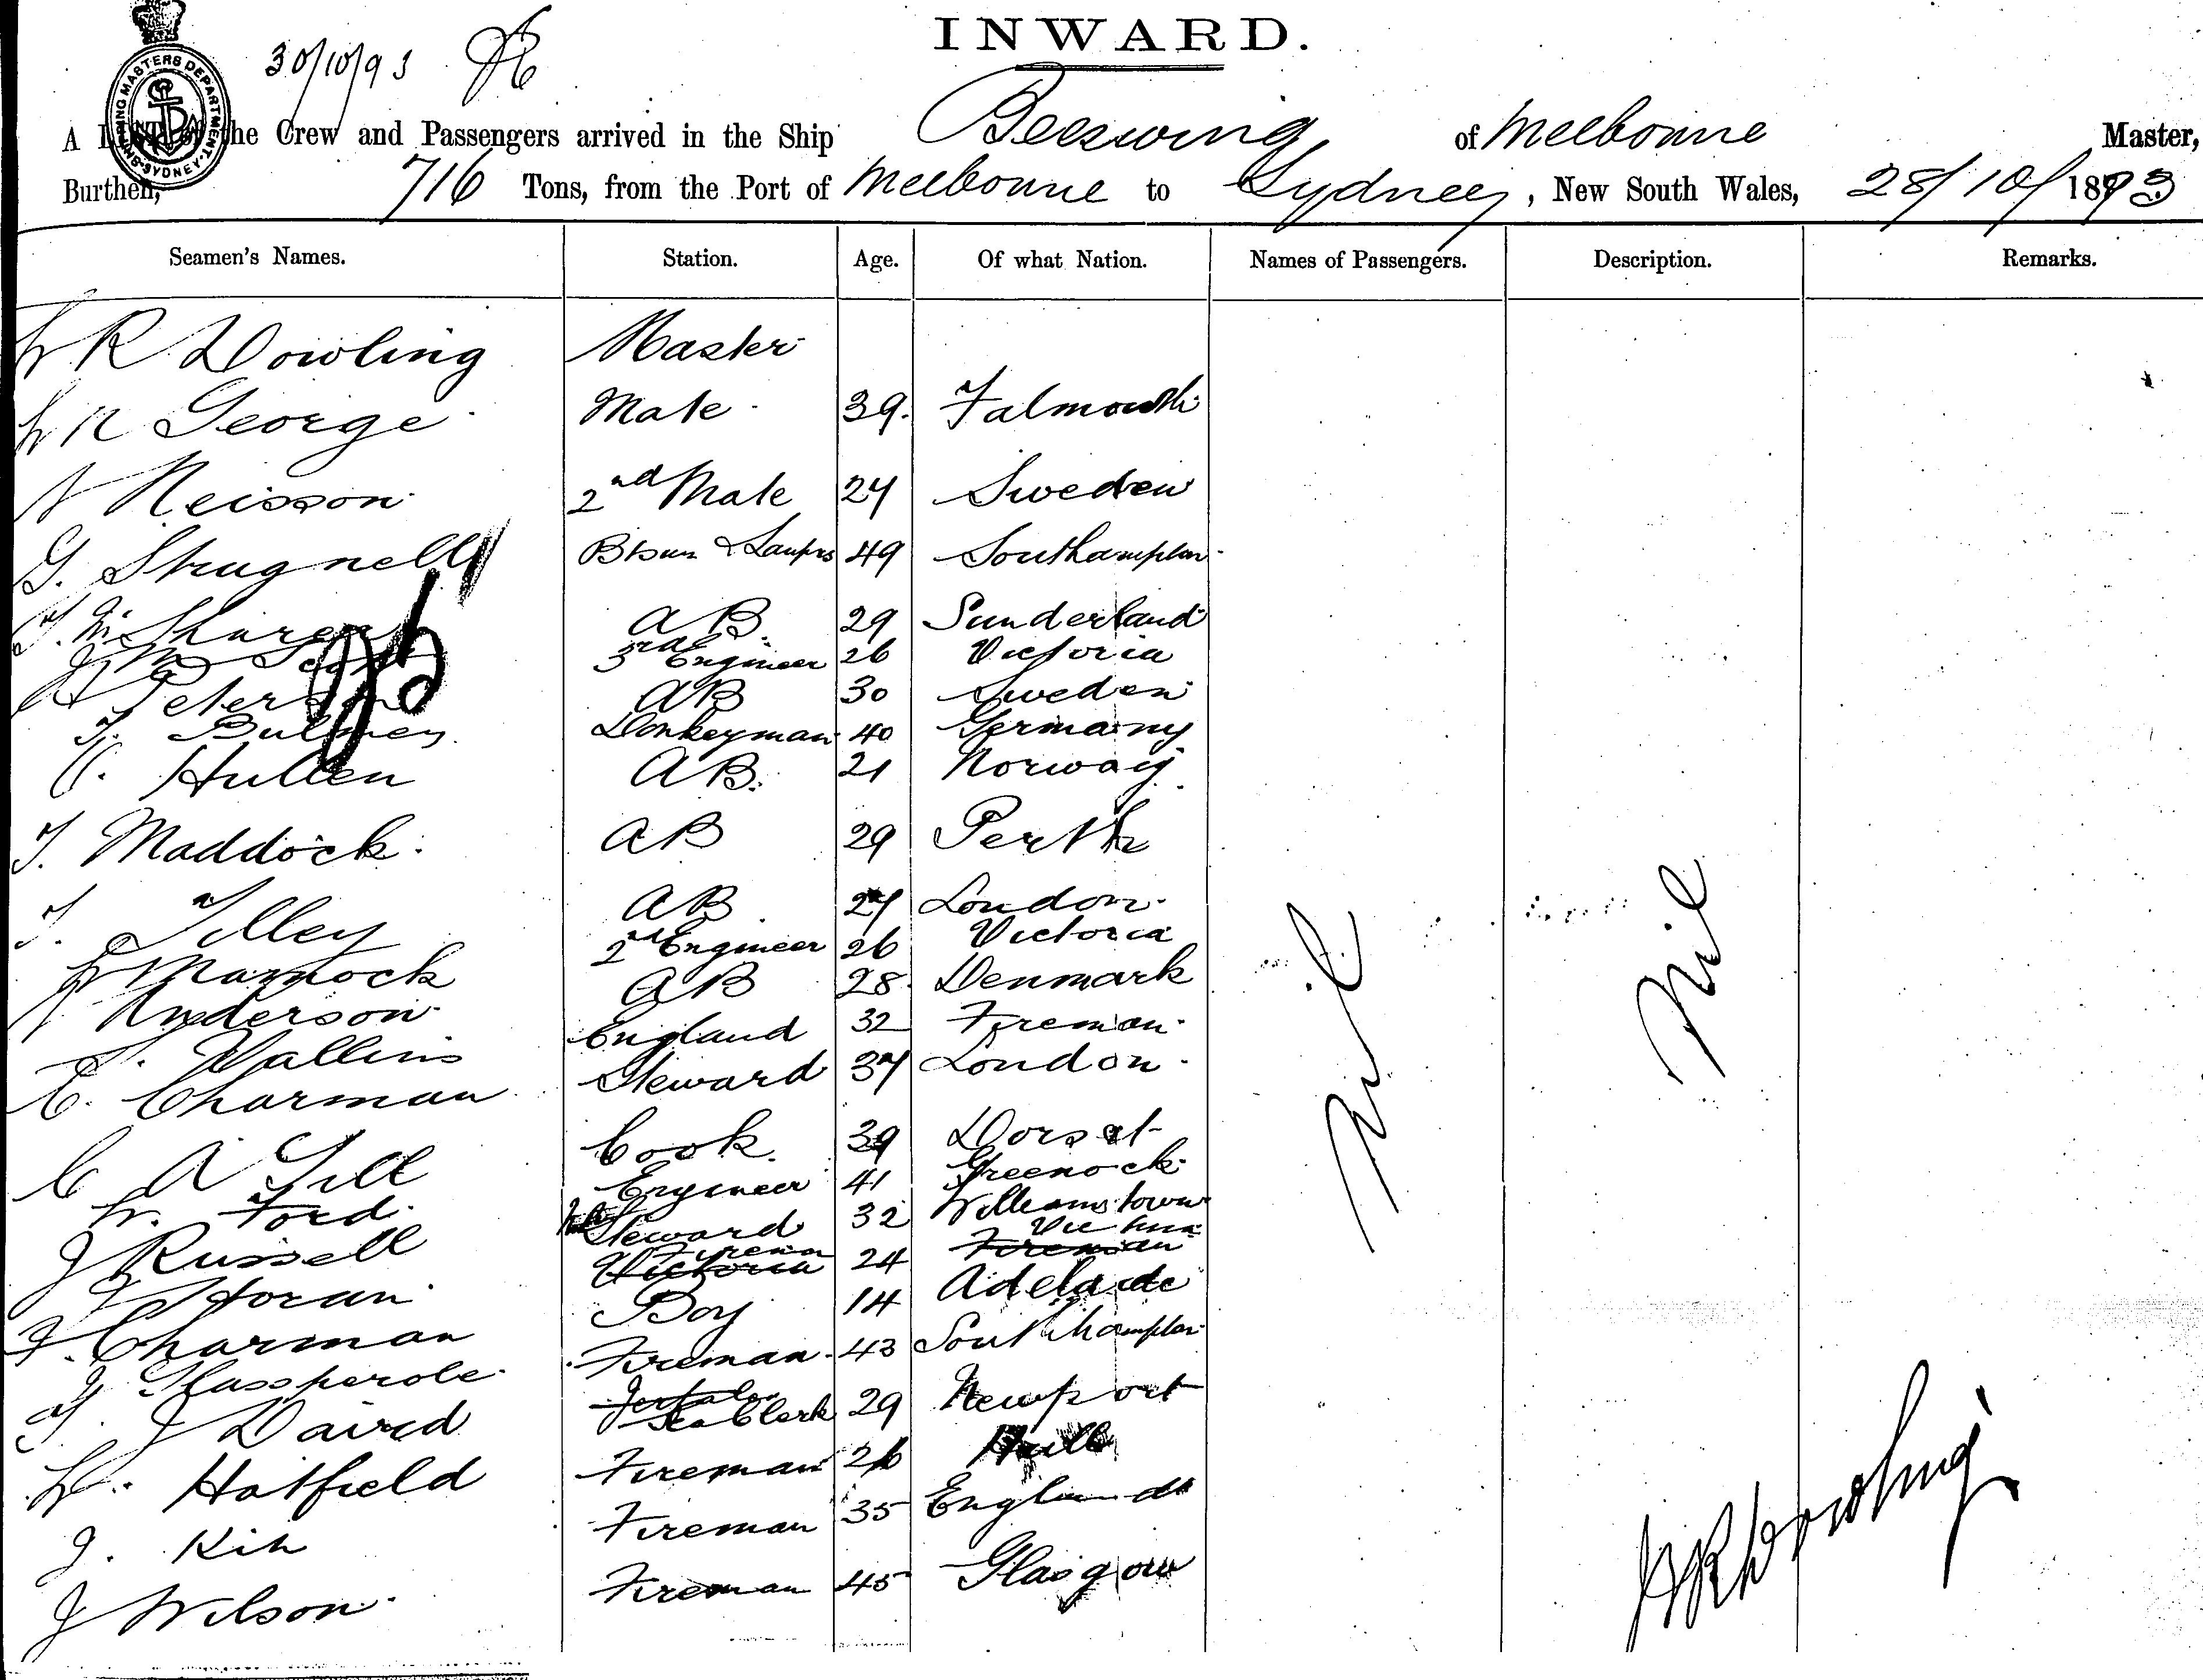 INWARD.
30/10/93
SHIPPING MASTERS DEPARTMENT SYDNEY
A LIST of the Crew and Passengers arrived in the Ship Beeswing of Melbonne Master,
Burthen, 716 Tons, from the Port of Melbonne to Sydney, New South Wales, 28/10/1893
Seamen's Names. Station. Age. Of what Nation. Names of Passengers. Description. Remarks.
R Dowling Master
George Mate 39. Falmouth
Neisson 2nd Mate 27 Sweden
G. Strugnell Bosun & Lamps 49 Southampton
AB. 29 Sunderland
3rd Engineer 26 Victoria
Peterson AB 30 Sweden
Donkeyman 40 Germany
C. Hullen AB. 21 Norway
T. Maddock. AB 29 Perth
T. Tilley AB 27 London.
Marnock 2nd Engineer 26 Victoria
Anderson AB 28 Denmark
Vallins England 32 Fireman
C. Charman Steward 37 London
C A Gill Cook. 39 Dorset
Ford. Engineer 41 Greenock
J Russell Steward 32 Williamstown
Horan Victoria Fireman 24 Fireman Victoria
Charman Boy 14 Adelaide
Glassperole Fireman 43 Southampton
J David Clerk 29 Newport
Hatfield Fireman 26 Hull
J. Kin Fireman 35 England
J Wilson Fireman 45 Glasgow
Nil
Nil
Dowling